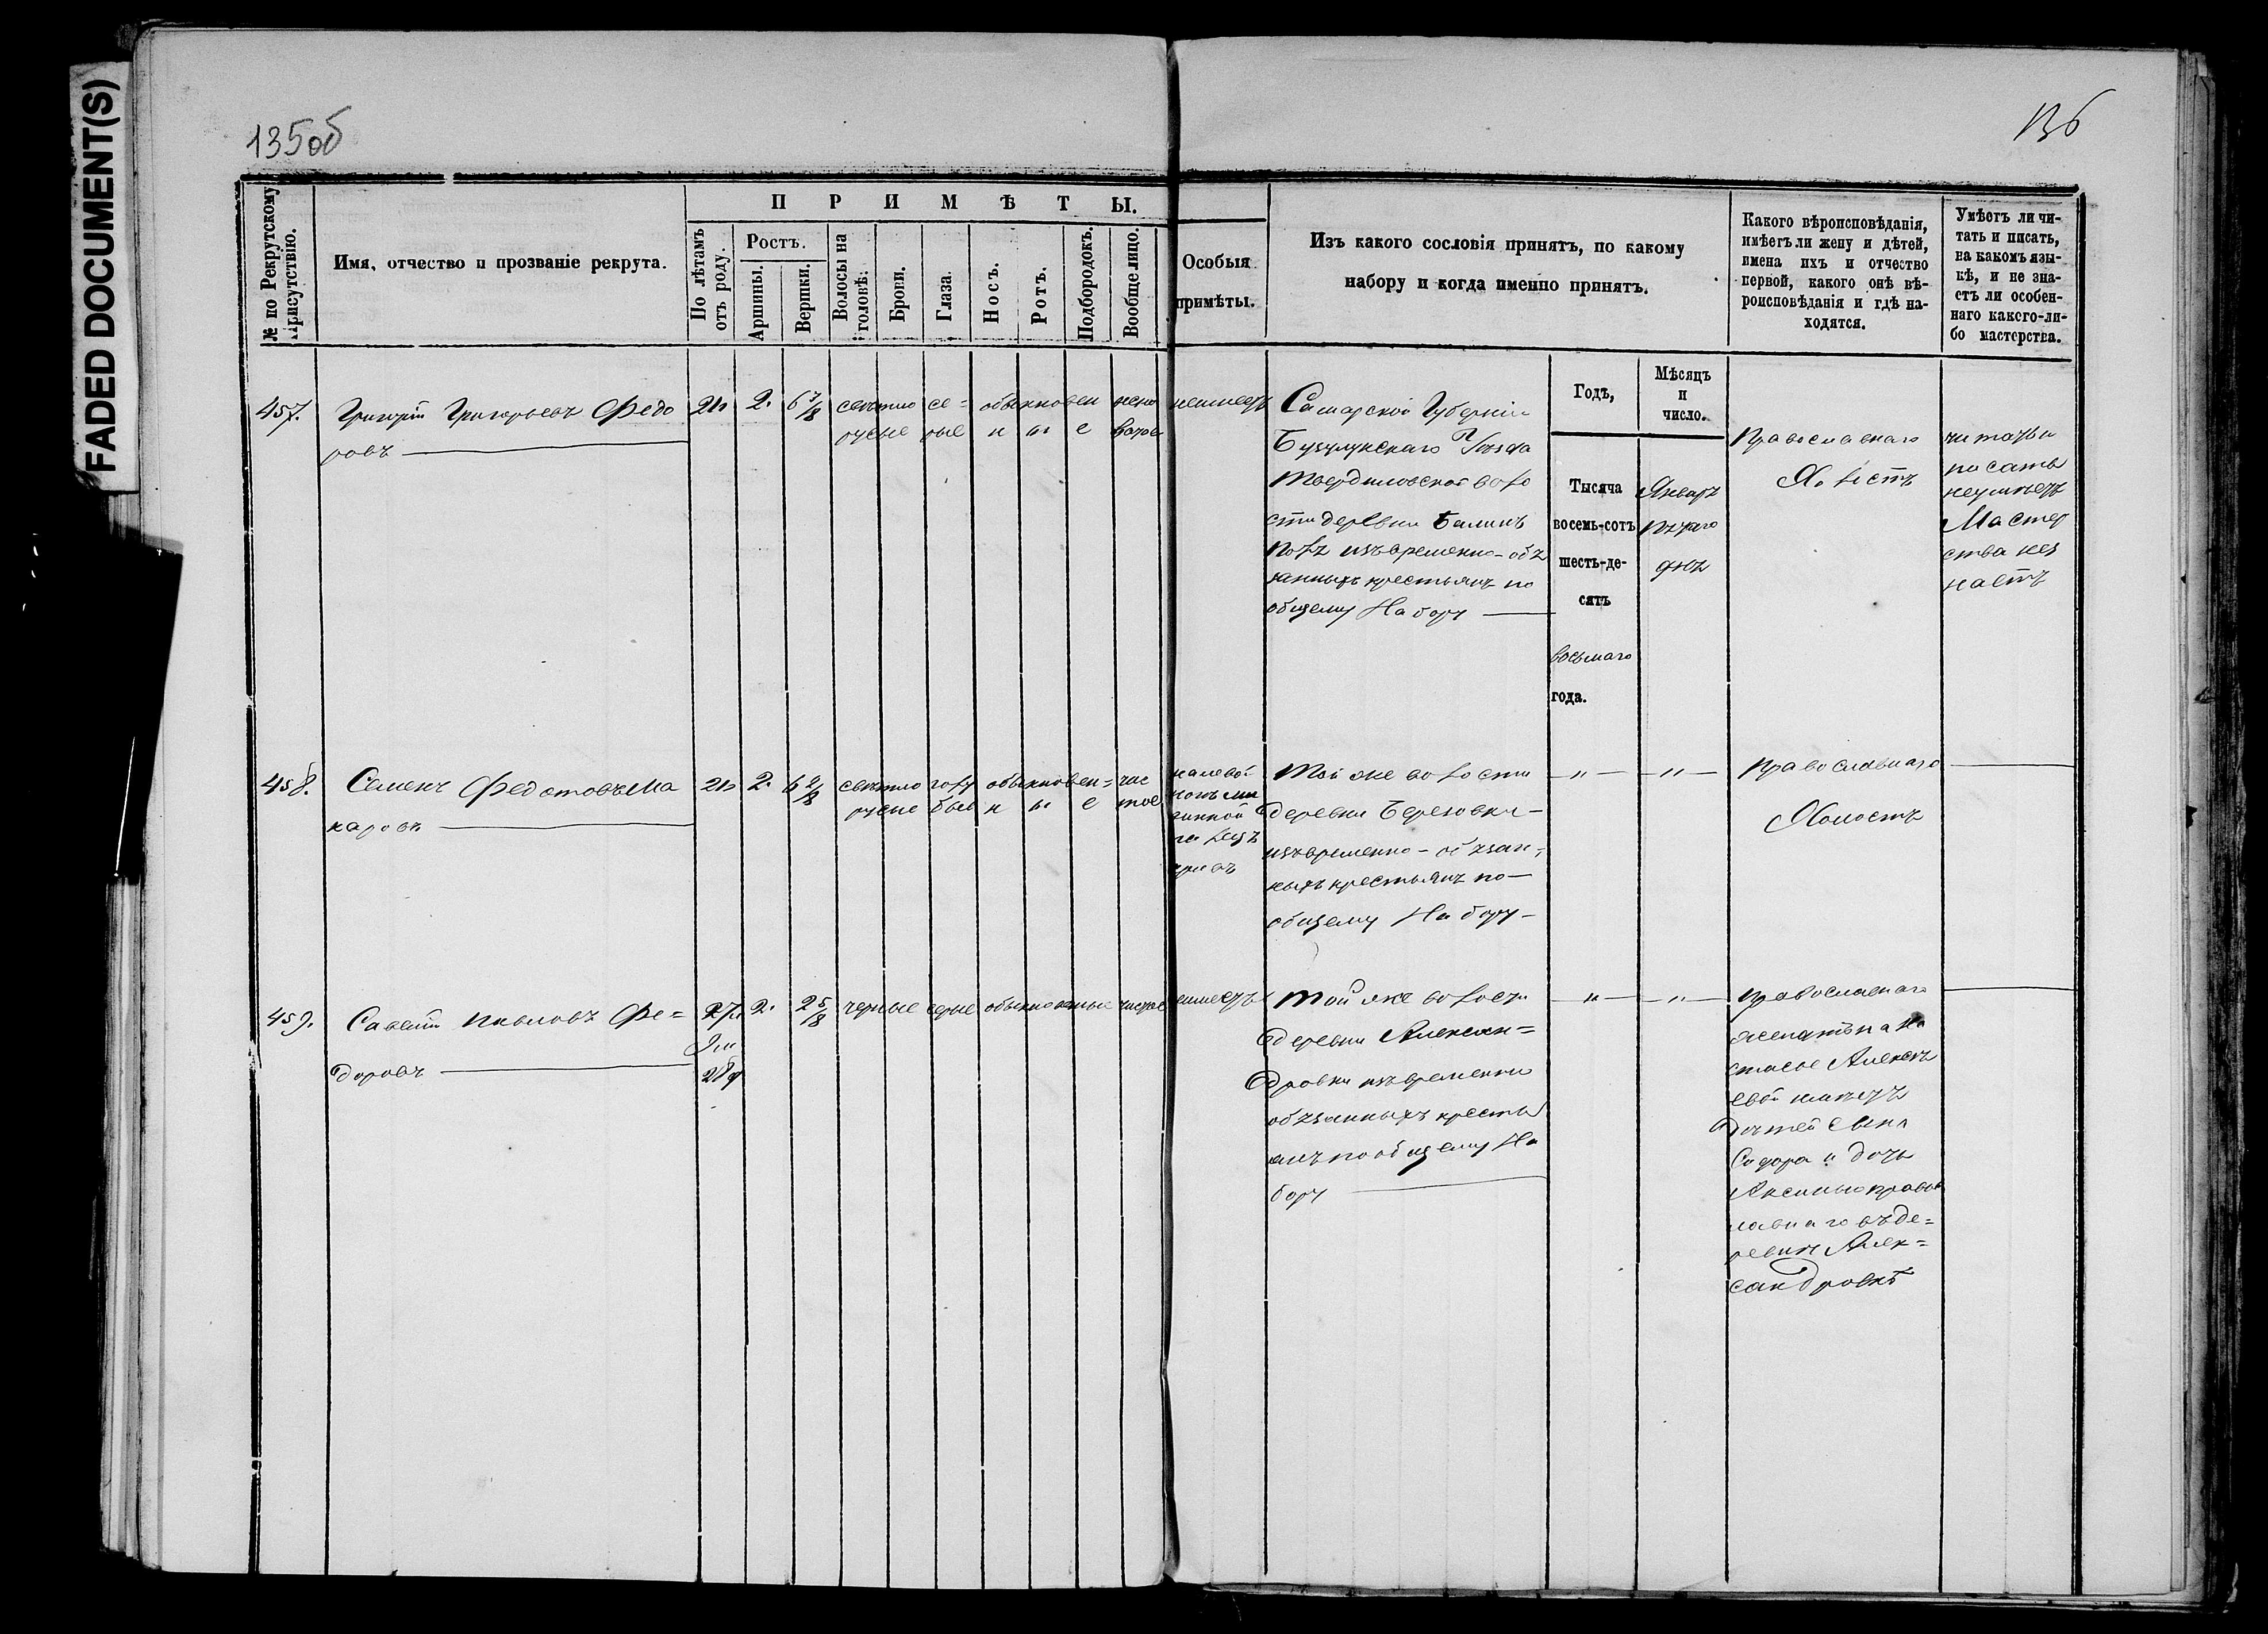 FADED DOCUMENT(S)
135об
136
№ по Рекрутскому Присутствію.
Имя, отчество и прозваніе рекрута.
ПРИМѢТЫ.
По лѣтамъ отъ роду.
Ростъ.
Аршины.
Вершки.
Волосы на головѣ.
Брови.
Глаза.
Носъ.
Ротъ.
Подбородокъ.
Вообще лицо.
Особыя
примѣты.
Изъ какого сословія принятъ, по какому
набору и когда именно принятъ.
Какого вѣроисповѣданія,
имѣетъ ли жену и дѣтей,
имена ихъ и отчество
первой, какого онѣ вѣ-
роисповѣданія и гдѣ на-
ходятся.
Умѣетъ ли чи-
тать и писать,
на какомъ язы-
кѣ, и не зна-
етъ ли особен-
наго какого-ли-
бо мастерства.
Годъ,
Мѣсяцъ
и
число.
457.
Григорій Григорьевъ Федо
ровъ
2. 6 7/8
свѣтло
русые
се-
рые
обыкновен
н ы е
неимеетъ
Самарской Губерніи
Бузулукскаго Уѣзда
Твердиловской воло
сти деревни
изъ временно-обя
занныхъ крестьянъ по
общему Набору
Тысяча
восемь-сотъ
шесть-де-
сятъ
восьмаго
года.
Январ
дня
Православнаго
Холостъ
читать и
писать
неумѣетъ
Мастер
ства нез
наетъ
458.
Семенъ Федотовъ Ма
каровъ
2. 6 2/8
свѣтло
русые
голу
бые
обыкновен=
н ы е
чис
тое
на левой
Той же волости
деревни Березовки
изъ временно-обязан-
ныхъ крестьянъ по
общему Набору
— „ — — „ —
Православнаго
Холостъ
459.
Савелій Павловъ Фе=
доровъ
27
2. 2 5/8
черные серые обыкновенные чистое
неимеетъ
Той же волости
деревни Алексан=
дровки изъ временно
обязанныхъ кресть
янъ по общему На
бору
— „ — — „ —
Православнаго
женатъ на На
стасье Алексѣ
евой имѣетъ
дѣтей сына
Сидора и дочь
Аксинью правос
лавнаго въ де=
ревнѣ Алек=
сандровкѣ